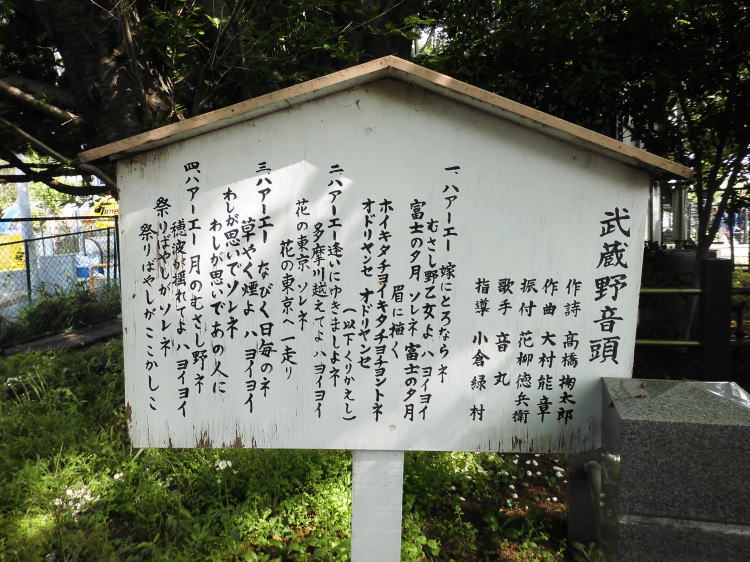 武蔵野音頭
作詩 高橋掬太郎
作曲 大村能章
振付 花柳徳兵衛
歌手 音丸
指導 小倉緑村
一、ハアーエー 嫁にとるなら ネ
むさし野乙女よ ハ ヨイヨイ
富士の夕月 ソレネ 富士の夕月
眉に描く
ホイキタチョイキタチョイチョントネ
オドリヤンセ オドリヤンセ
(以下くりかえし)
二、ハアーエー 逢いにゆきましよネ
多摩川越えてよ ハ ヨイヨイ
花の東京 ソレネ
花の東京へ 一走り
三、ハアーエー なびく日毎のネ
草やく煙よ ハ ヨイヨイ
わしが思いでソレネ
わしが思いであの人に
四、ハアーエー 月のむさし野ネ
穂波が揺れてよ ハ ヨイヨイ
祭りばやしがソレネ
祭りばやしがここかしこ